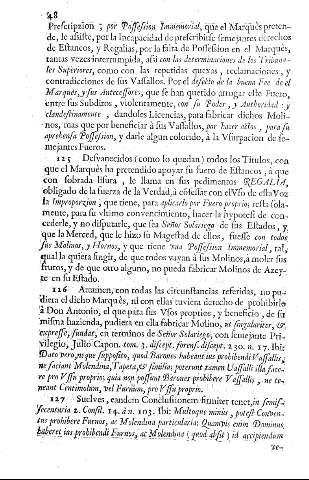 48
Prescripzion; por Possession Immemorial, que el Marquès preten-
de, le assiste, por la Incapacidad de prescribirse semejantes derechos
de Estancos, y Regalias, por la falta de Possession en el Marquès,
tantas vezes interrumpida, assi con las determinaciones de los Tribuna-
les Superiores, como con las repetidas quexas, reclamaciones, y
contradicciones de sus Vassallos. Por el defecto de la buena Fee de el
Marquès, y sus Antecessores, que se han querido arrogar esse Fuero,
entre sus Subditos, violentamente, con su Poder, y Authoridad: y
clandestinamente, dandoles Licencias, para fabricar dichos Moli-
nos, mas que por beneficiar à sus Vassallos, por hacer actos, para su
aprehensa Possession, y darle algun colorido, à la Vsurpacion de se-
mejantes Fueros.
125 Desvanecidos (como lo quedan) todos los Titulos, con
que el Marquès ha pretendido apoyar su fuero de Estancos, à que
con sobrada lisura, le llama en sus pedimentos REGALIA,
obligado de la fuerza de la Verdad, à ofrecerse con el Vso de esta Voz
la improporcion; que tiene, para aplicarlo por Fuero proprio; resta sola-
mente, para su vltimo convencimiento, hacer la hypotesi de con-
cederle, y no disputarle, que sea Señor Solariego de sus Estados, y
que la Merced, que le hizo su Magestad de ellos, fuesse con todos
sus Molinos, y Hornos, y que tiene una Possession Immemorial, tal,
qual la quiera fingir, de que todos vayan à sus Molinos, à moler sus
frutos, y de que otro alguno, no pueda fabricar Molinos de Azey-
te en su Estado.
126 Attamen, con todas las circunstancias referidas, no pu-
diera el dicho Marquès, ni con ellas tuviera derecho de prohibirle
à Don Antonio, el que para sus Vsos proprios, y beneficio, de su
misma hazienda, pudiera en ella fabricar Molino, ut singulariter, &
expresse, fundat, en terminos de Señor Solariego, con semejante Pri-
vilegio, Julio Capon. tom. 3. discept. forens. discept. 230. n. 17. Ibi:
Dato vero, neque supposito, quod Barones habeant ius prohibendi Vassallis,
ne faciant Molendina, Tapeta, & similia; poterunt tamen Vassalli illa face-
re pro Vsu proprio, quia non possunt Barones prohibere Vassallis, ne te-
neant Centimolum, vel Furnum, pro Vsu proprio.
127 Suelves, eandem Conclussionem firmiter tenet, in semis-
secenturia 2. Consil. 14. à n. 103. Ibi: Multoque minus, potest Conven-
tus prohibere Furnos, ac Molendina particularia: Quamvis enim Dominus,
haberet ius prohibendi Furnos, ac Molendina (quod absit) id accipiendum